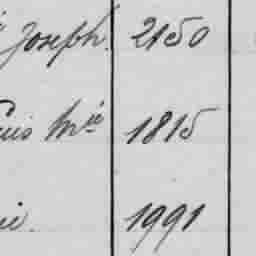 Joseph. 2150
Mie 1815
1991